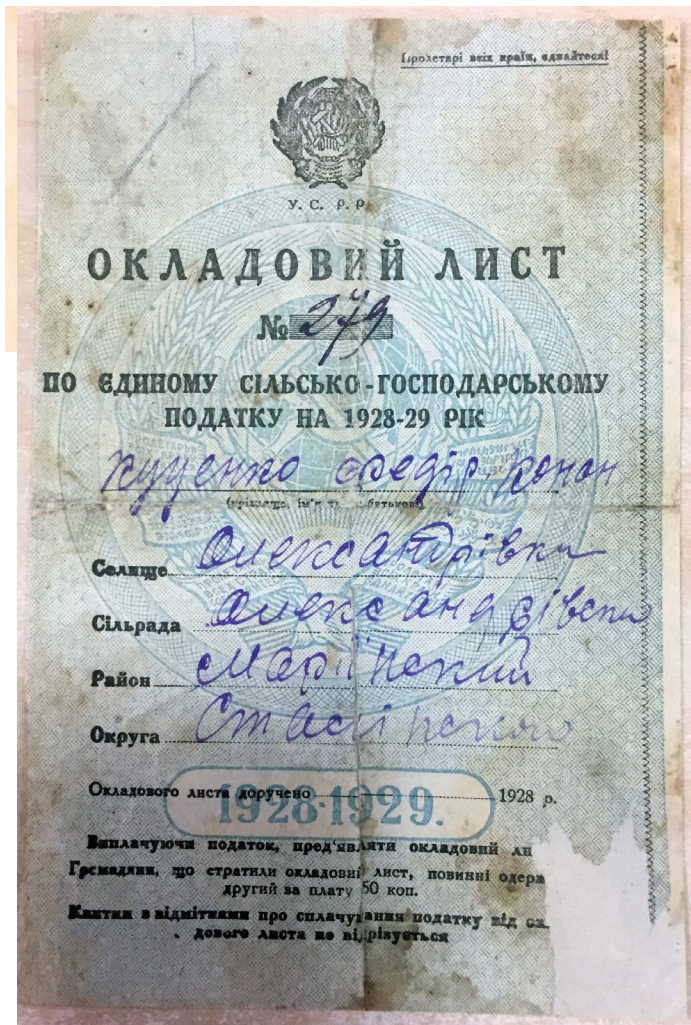 Пролетарі всіх країн, єднайтеся!
У. С. Р. Р.
ОКЛАДОВИЙ ЛИСТ
№ 279
ПО ЄДИНОМУ СІЛЬСЬКО-ГОСПОДАРСЬКОМУ
ПОДАТКУ НА 1928-29 РІК
Куценко Федір Конон
(прізвище, ім'я та по батькові)
Селище Олександрівка
Сільрада Олександрівська
Район Мар'їнский
Округа Сталінского
Окладового листа доручено 1928 р.
1928-1929.
Виплачуючи податок, пред'являти окладовий ли
Громадяни, що стратили окладовий лист, повинні одерж
другий за плату 50 коп.
Квитки з відмітками про сплачування податку від ок
дового листа не відрізується